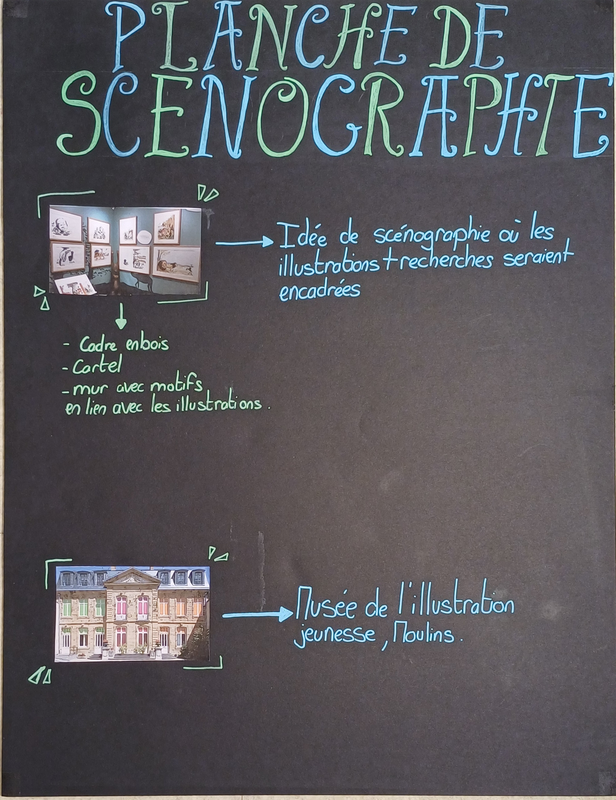 PLANCHE DE
SCENOGRAPHIE
Idée de scénographie où les
illustrations + recherches seraient
encadrées
- Cadre en bois
- Cartel
- mur avec motifs
en lien avec les illustrations.
Musée de l'illustration
jeunesse, Moulins.